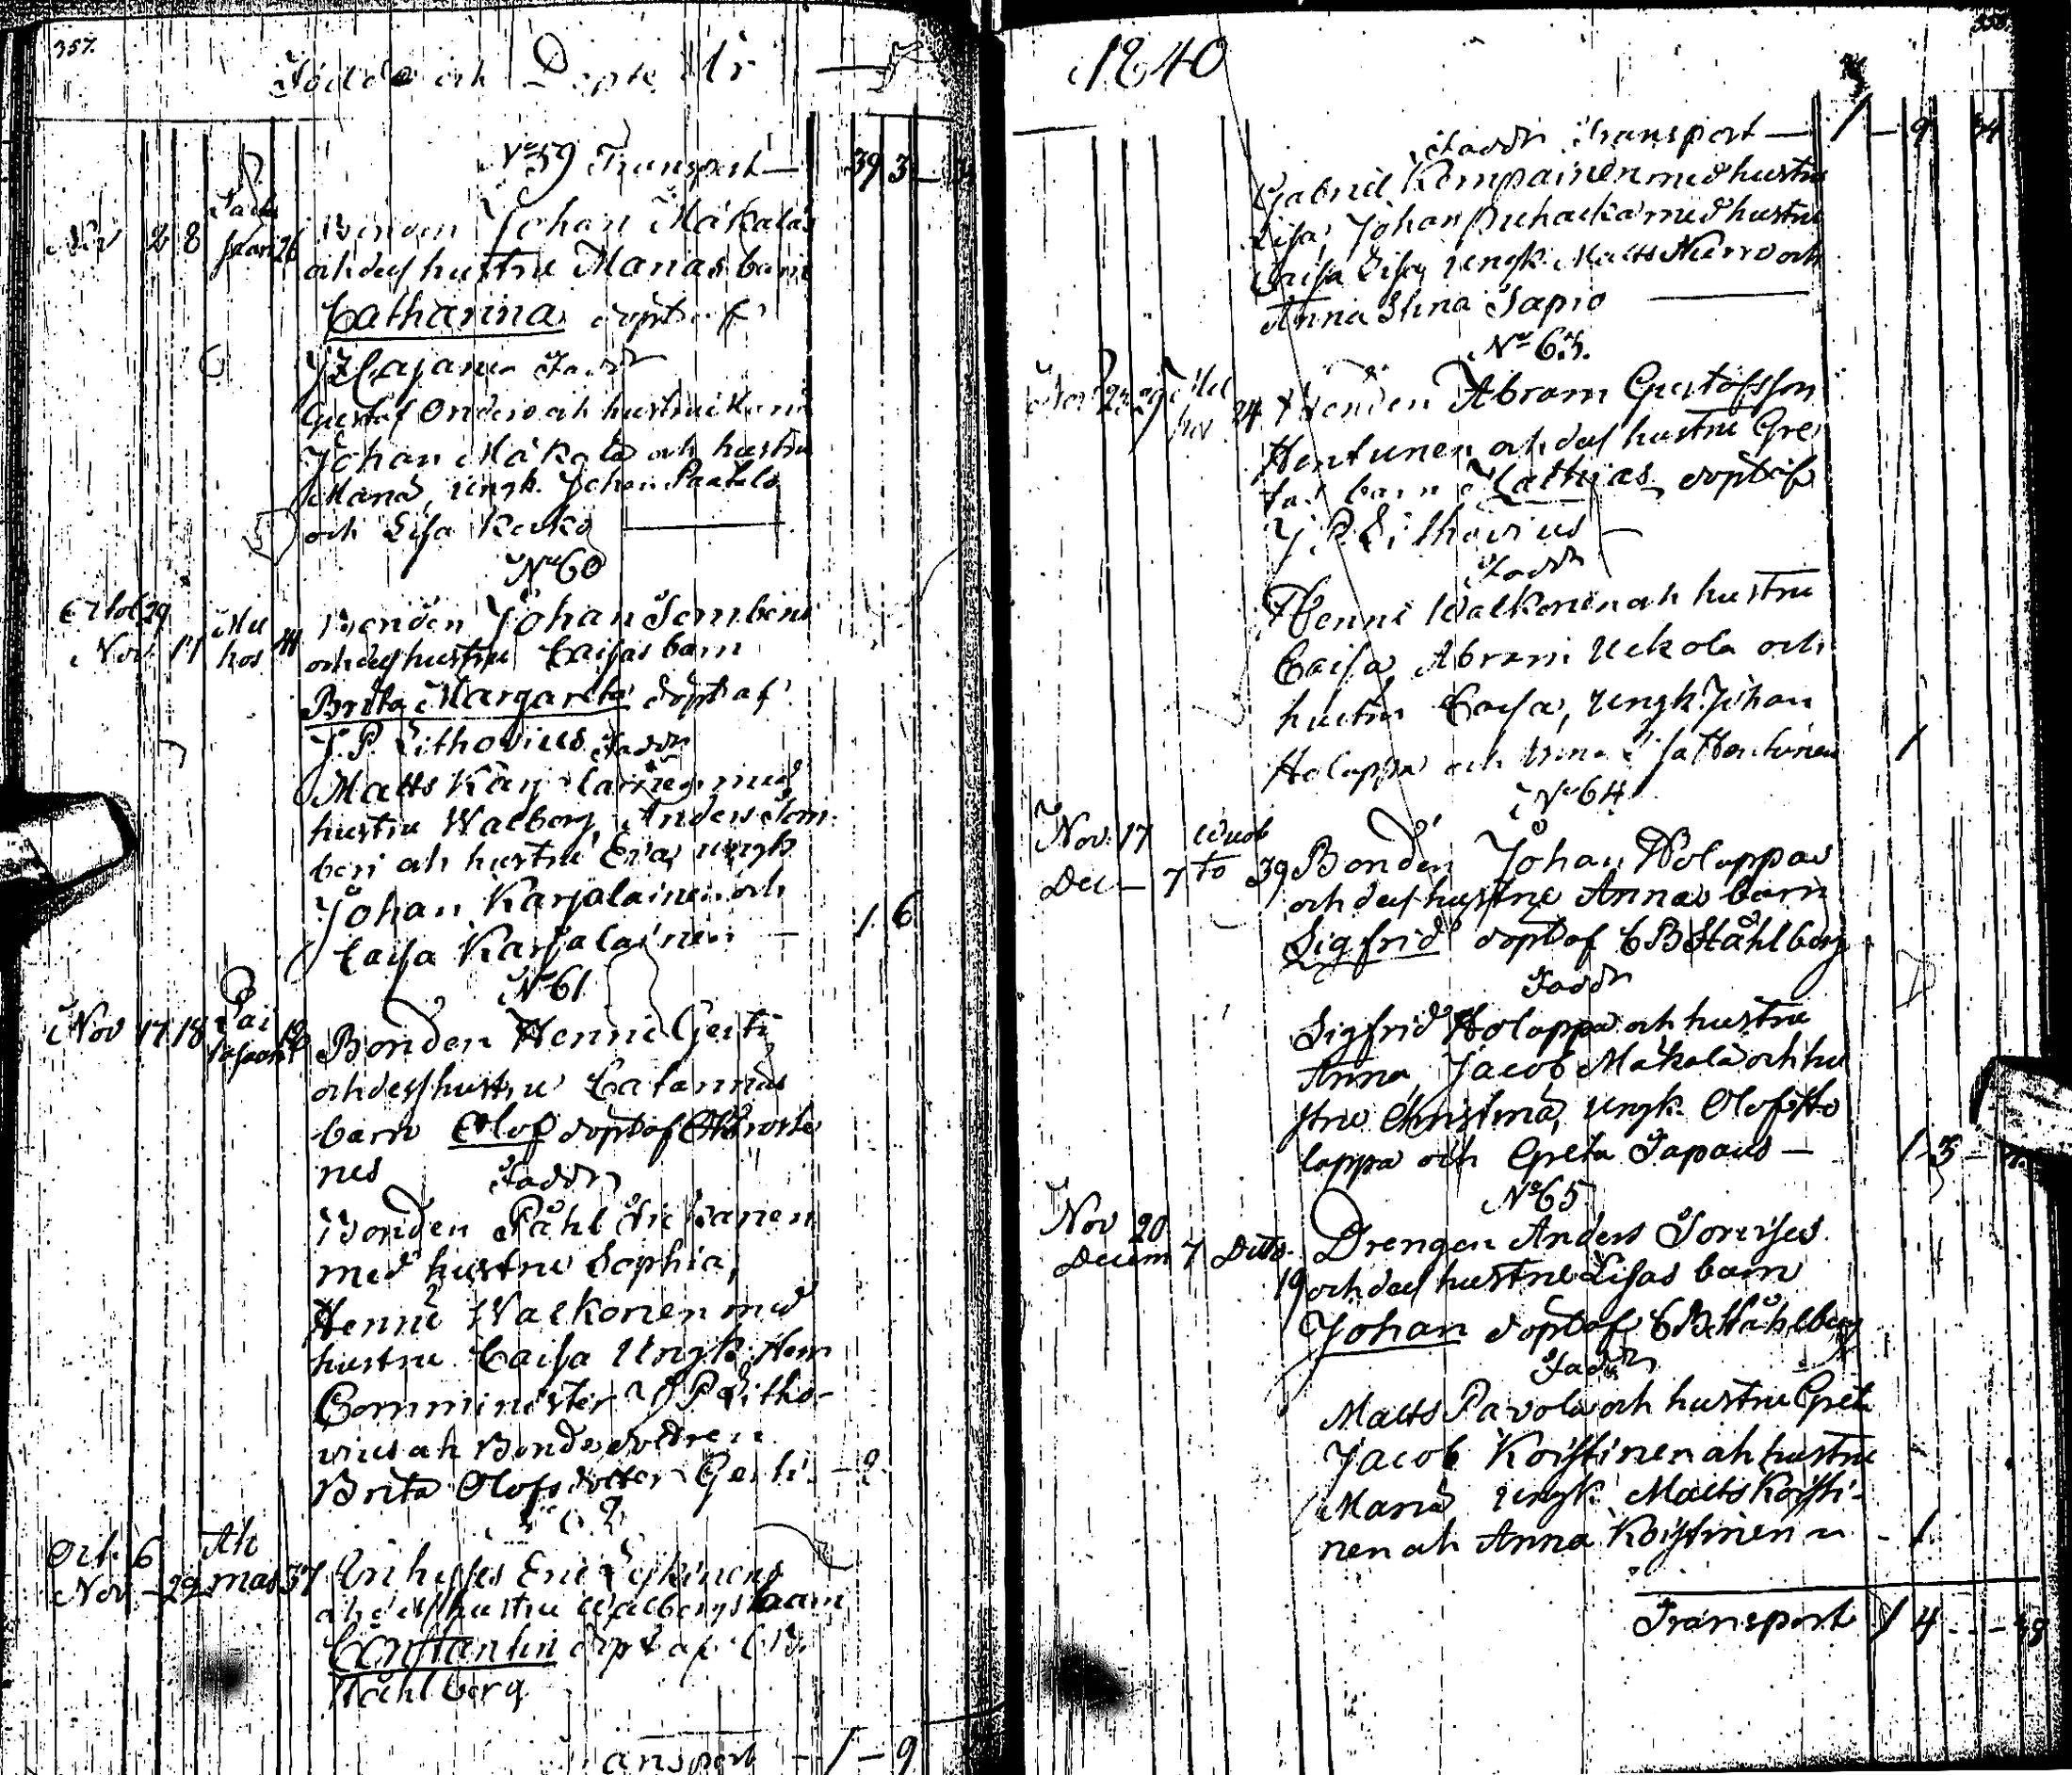 357.
Födde och Döpte År
No 59 Transport — 39 3 —
Nov 2 8 Bonden Johan Mäkäläs
26 och dess hustru Marias barn
Catharina döpt af
Cajanus Faddr
Gustaf Ondero och hustru
Johan Mäkälä och hustru
Maria, ungk. Johan Paatalo
och Lisa Keckå
No 60
Octob 29 Mu Bonden Johan Tombens
Nov. 11 hos 44 och dess hustru Caisas barn
Brita Margareta döpt af
J. P. Lithovius Faddr
Matts Karjalainen med
hustru Walborg, Anders Tom-
beri och hustru Eva, ungk
Johan Karjalainen och
Caisa Karjalainen — 1. 6
No 61
Nov 17 18 Bonden Henric Gerti
och dess hustru Catarinas
barn Olof döpt af
nes Faddr
Bonden Påhl
med hustru Sophia,
Henric Walkonen med
hustru Caisa Ungk. Herr
Comminister J P Litho-
vius och Bondedottren
Brita Olofsdotter Gerti — 2
62
Oct. 6 Ah
Nov — 29 mas 37 Inhyses Eric
och dess hustru Walborgs barn
Constantin döpt af C. B.
Ståhlberg
Transport — 1 — 9
1840
Faddr Transport — 1 — 9 44
Gabriel Komppainen med hustru
Lisa, Johan Puhacka med hustru
Caisa Lisa, ungk. Matts Kärrö och
Anna Stina Tapio
No 63.
Nov 29 Mu
hos 24 Bonden Abram Gustafsson
Hentunen och dess hustru Gre-
tas barn Matthias döpt af
J. P. Lithovius
Faddr
Henric Walkonen och hustru
Caisa Abram Uckola och
hustru Caisa, ungk. Johan
Holappa och Anna Lisa Hentunen 1
No 64
Nov. 17 Wuol
Dec — 7 to 39 Bonden Johan Holappas
och dess hustru Annas barn
Sigfrid döpt af C B Ståhlberg
Faddr
Sigfrid Holappa och hustru
Anna, Jacob Mäkälä och hu
stru Christina, ungk. Olof Ho
lappa och Greta Tapaus — 1 3 —
No 65
Nov 20 Drengen Anders Torvises
Decem 7 Ditto 19 och dess hustru Lisas barn
Johan döpt af C B Ståhlberg
Faddr
Matts Pavola och hustru Greta
Jacob Koistinen och hustru
Maria ungk. Matts Koisti-
nen och Anna Koistinen — 1
Transport 1 4 — 48